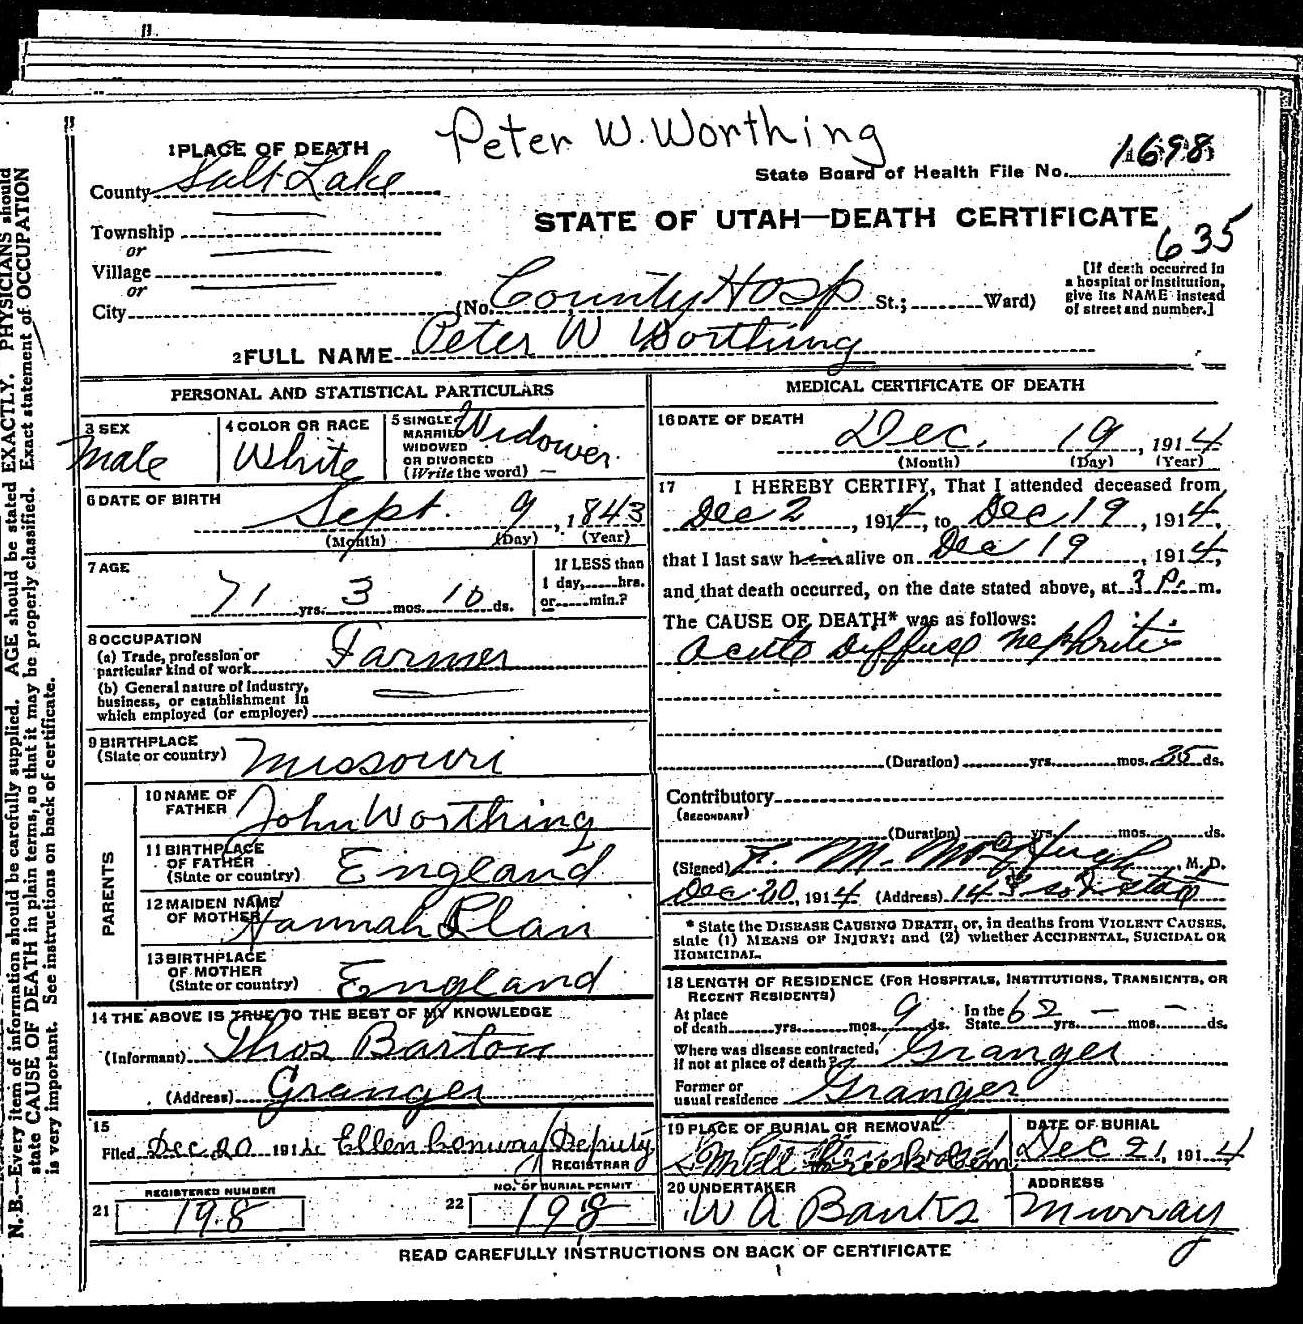 Peter W. Worthing
1 PLACE OF DEATH
County Salt Lake
State Board of Health File No. 1698
STATE OF UTAH—DEATH CERTIFICATE
635
Township
or
Village
or
City
(No. County Hosp St.; Ward)
[If death occurred in
a hospital or institution,
give its NAME instead
of street and number.]
2 FULL NAME Peter W Worthing
PERSONAL AND STATISTICAL PARTICULARS
3 SEX
Male
4 COLOR OR RACE
White
5 SINGLE
MARRIED
WIDOWED
OR DIVORCED
(Write the word)
Widower
6 DATE OF BIRTH
Sept. 9, 1843
(Month) (Day) (Year)
7 AGE
71 yrs. 3 mos. 10 ds.
If LESS than
1 day, hrs.
or min.?
8 OCCUPATION
(a) Trade, profession or
particular kind of work Farmer
(b) General nature of industry,
business, or establishment in
which employed (or employer)
9 BIRTHPLACE
(State or country) Missouri
PARENTS
10 NAME OF
FATHER John Worthing
11 BIRTHPLACE
OF FATHER
(State or country) England
12 MAIDEN NAME
OF MOTHER Hannah
13 BIRTHPLACE
OF MOTHER
(State or country) England
14 THE ABOVE IS TRUE TO THE BEST OF MY KNOWLEDGE
(Informant) Thos Barton
(Address) Granger
15
Filed Dec 20 191 Ellen Conway Deputy
REGISTRAR
21 REGISTERED NUMBER
198
22 NO. OF BURIAL PERMIT
198
MEDICAL CERTIFICATE OF DEATH
16 DATE OF DEATH
Dec. 19, 1914
(Month) (Day) (Year)
17 I HEREBY CERTIFY, That I attended deceased from
Dec 2, 1914, to Dec 19, 1914,
that I last saw him alive on Dec 19, 1914,
and that death occurred, on the date stated above, at 3 P. m.
The CAUSE OF DEATH* was as follows:
Acute Diffuse Nephritis
(Duration) yrs. mos. 25 ds.
Contributory
(SECONDARY)
(Duration) yrs. mos. ds.
(Signed) F. M. McHugh, M. D.
Dec 20, 1914 (Address) 143 So
* State the DISEASE CAUSING DEATH, or, in deaths from VIOLENT CAUSES,
state (1) MEANS OF INJURY; and (2) whether ACCIDENTAL, SUICIDAL OR
HOMICIDAL.
18 LENGTH OF RESIDENCE (FOR HOSPITALS, INSTITUTIONS, TRANSIENTS, OR
RECENT RESIDENTS)
At place
of death yrs. mos. 9 ds. In the
State 62 yrs. — mos. — ds.
Where was disease contracted,
if not at place of death? Granger
Former or
usual residence Granger
19 PLACE OF BURIAL OR REMOVAL
Cem
DATE OF BURIAL
Dec 21, 1914
20 UNDERTAKER
W A Banks
ADDRESS
Murray
READ CAREFULLY INSTRUCTIONS ON BACK OF CERTIFICATE
N. B.—Every item of information should be carefully supplied. AGE should be stated EXACTLY. PHYSICIANS should
state CAUSE OF DEATH in plain terms, so that it may be properly classified. Exact statement of OCCUPATION
is very important. See instructions on back of certificate.